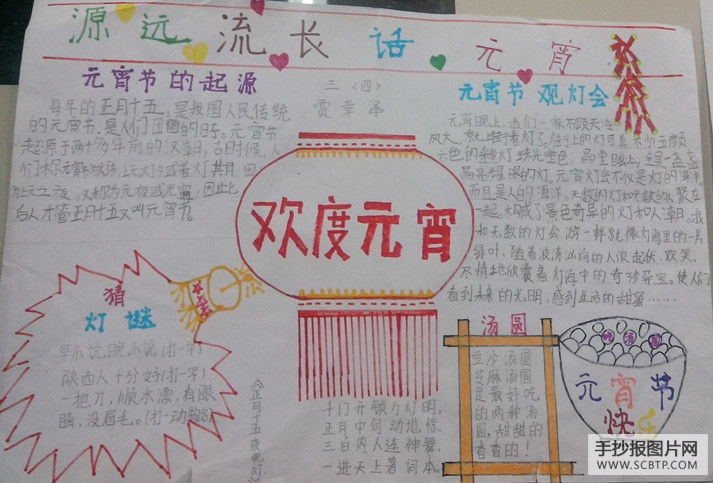 源远流长话元宵
元宵节的起源
三〈四〉
贾章泽
每年的正月十五,是我国人民传统
的元宵节,是人们团圆的日子。元宵节
起源于两千多年前的汉朝,古时候,人
后人才管正月十五叫元宵节。
元宵节 观灯会
元宵晚上,我们一家不顾天冷
风大,就上街看灯了。街上的灯可真
六色的彩灯
晶亮耀眼的灯,元宵灯会不仅是灯的海洋,
而且是人的海洋。无数的灯和无数的人聚在
一起,构成了景色奇异的灯和人海。我
和无数的灯会游一样就像灯海里的一片
绿叶,随着波涛汹涌的人浪起伏、欢笑,
尽情地欣赏着灯海中的奇珍异宝。使人们
看到未来的光明,感到生活的甜蜜……
欢度元宵
猜
灯谜
早不说,晚不说(打一字)
陕西人十分好(打一字)
一把刀,顺水漂,有眼
睛,没眉毛。(打一动物)
《正月十五夜观灯》
千门开锁万灯明,
正月中旬动地京。
三百内人连袖舞,
一进天上著词本。
汤圆
豆沙汤圆
芝麻汤圆
是最好吃
的两种汤
圆,甜甜的
香香的!
元宵节
快乐
手抄报图片网
WWW.SCBTP.COM